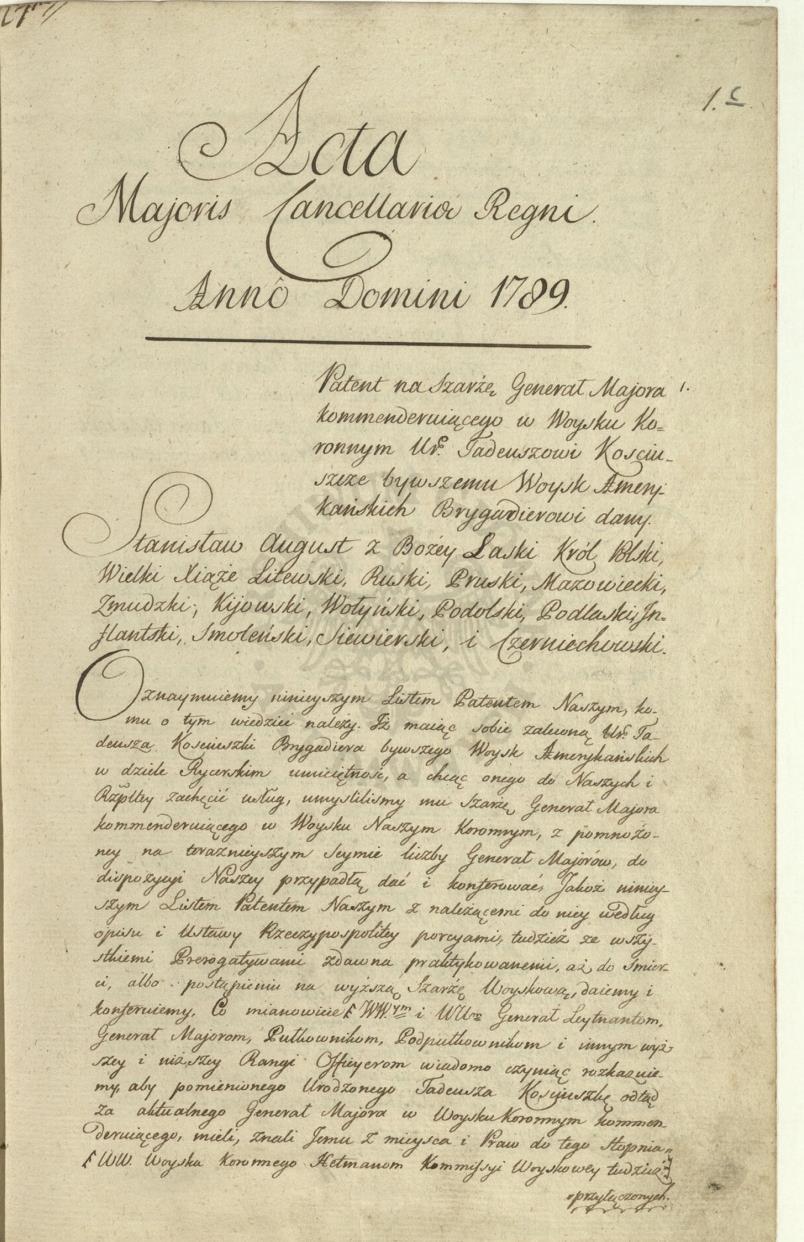 1. c
Acta
Majoris Cancellariæ Regni.
Annô Domini 1789.
Patent na Szarżę Generał Majora 1.
kommenderuiącego w Woysku Ko=
ronnym Ur. Tadeuszowi Kosciu-
szce bywszemu Woysk Amery-
kańskich Brygadierowi dany.
Stanisław August z Bożey Łaski Król Polski,
Wielki Xiąże Litewski, Ruski, Pruski, Mazowiecki,
Zmudzki, Kijowski, Wołyński, Podolski, Podlaski, In-
flantski, Smoleński, Siewierski, i Czerniechowski.
Oznaymuiemy ninieyszym Listem Patentem Naszym, ko-
mu o tym wiedzieć należy. Iż maiąc sobie zaleconą Ur. Ta-
deusza Kosciuszki Brygadiera bywszego Woysk Amerykańskich
w dziele Rycerskim umieiętność, a chcąc onego do Naszych i
Rzpltey zachęcić usług, umyśliliśmy mu Szarżę Generał Majora
kommenderuiącego w Woysku Naszym Koronnym, z pomnożo-
ney na teraznieyszym Seymie liczby Generał Majorów, do
dispozycyi Naszey przypadłą dać i konferować, Jakoż niniey-
szym Listem Patentem Naszym z należącemi do niey według
opisu i Ustawy Rzeczypospolitey porcyami, tudzież ze wszy-
stkiemi Prerogatywami zdawna praktykowanemi, aż do śmier-
ci, albo postąpieniu na wyższą Szarżę Woyskową, daiemy i
konferuiemy. Co mianowicie WW. i UUr. Generał Leytnantom,
Generał Majorom, Pułkownikom, Podpułkownikom i innym wyż-
szey i niższey Rangi Officyerom wiadomo czyniąc rozkazuie-
my, aby pomienionego Urodzonego Tadeusza Kosciuszkę odtąd
za aktualnego Generał Majora w Woysku Koronnym kommen-
deruiącego, mieli, znali Jemu z mieysca i Praw do tego Stopnia
WW. Woyska Koronnego Hetmanom Kommissyi Woyskowey tudzież
przyłączonych.